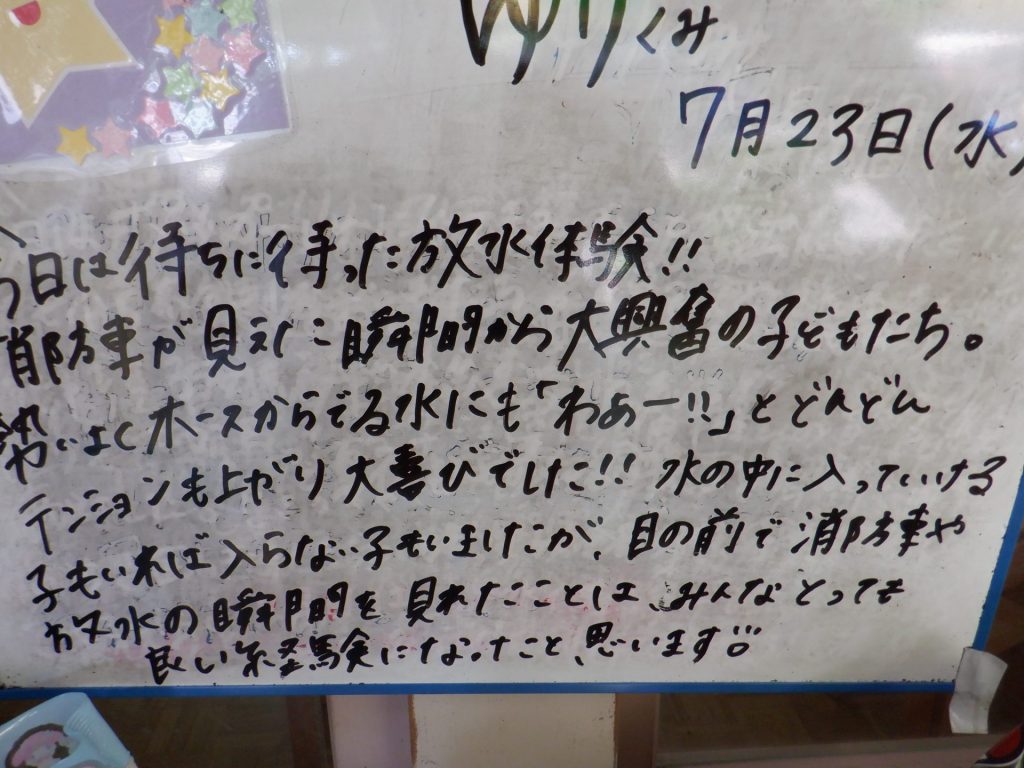 ゆりくみ
7月23日(水)
今日は待ちに待った放水体験!!
消防車が見えた瞬間から大興奮の子どもたち。
勢いよくホースからでる水にも「わぁー!!」とどんどん
テンションも上がり大喜びでした!! 水の中に入っていける
子もいれば入らない子もいましたが、目の前で消防車や
放水の瞬間を見れたことは、みんなとっても
良い経験になったこと、思います